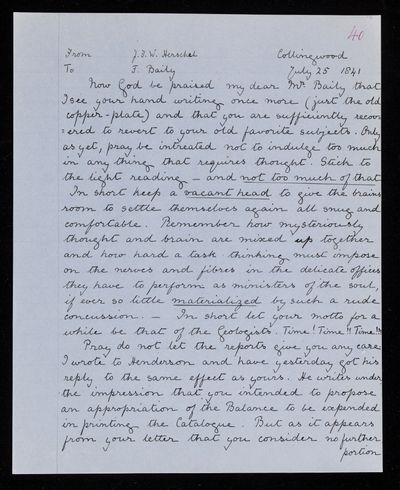 40
From J.F.W. Herschel Collingwood
To F. Baily July 25 1841
Now God be praised my dear Mr. Baily that
I see your hand writing once more (just the old
copper-plate) and that you are sufficiently recov
=ered to revert to your old favorite subjects. Only
as yet, pray be intreated not to indulge too much
in any thing that requires thought. Stick to
the light reading – and not too much of that
In short keep a vacant head to give the brains
room to settle themselves again all snug and
comfortable. Remember how mysteriously
thought and brain are mixed up together
and how hard a task thinking must impose
on the nerves and fibres in the delicate offices
they have to perform as ministers of the soul,
if ever so little materialized by such a rude
concussion. — In short let your motto for a
while be that of the Geologists. Time! Time!! Time!!!
Pray do not let the reports give you any care
I wrote to Henderson and have yesterday got his
reply to the same effect as yours. He writes under
the impression that you intended to propose
an appropriation of the Balance to be expended
in printing the Catalogue. But as it appears
from your letter that you consider no further
portion